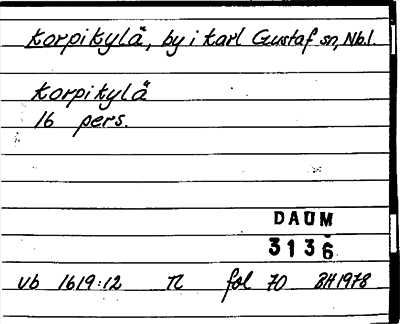 Korpikylä, by i Karl Gustaf sn, Nb.l.
Korpikylä
16 pers.
DAUM
3136
vb 1619:12 R fol 70 BH 1978